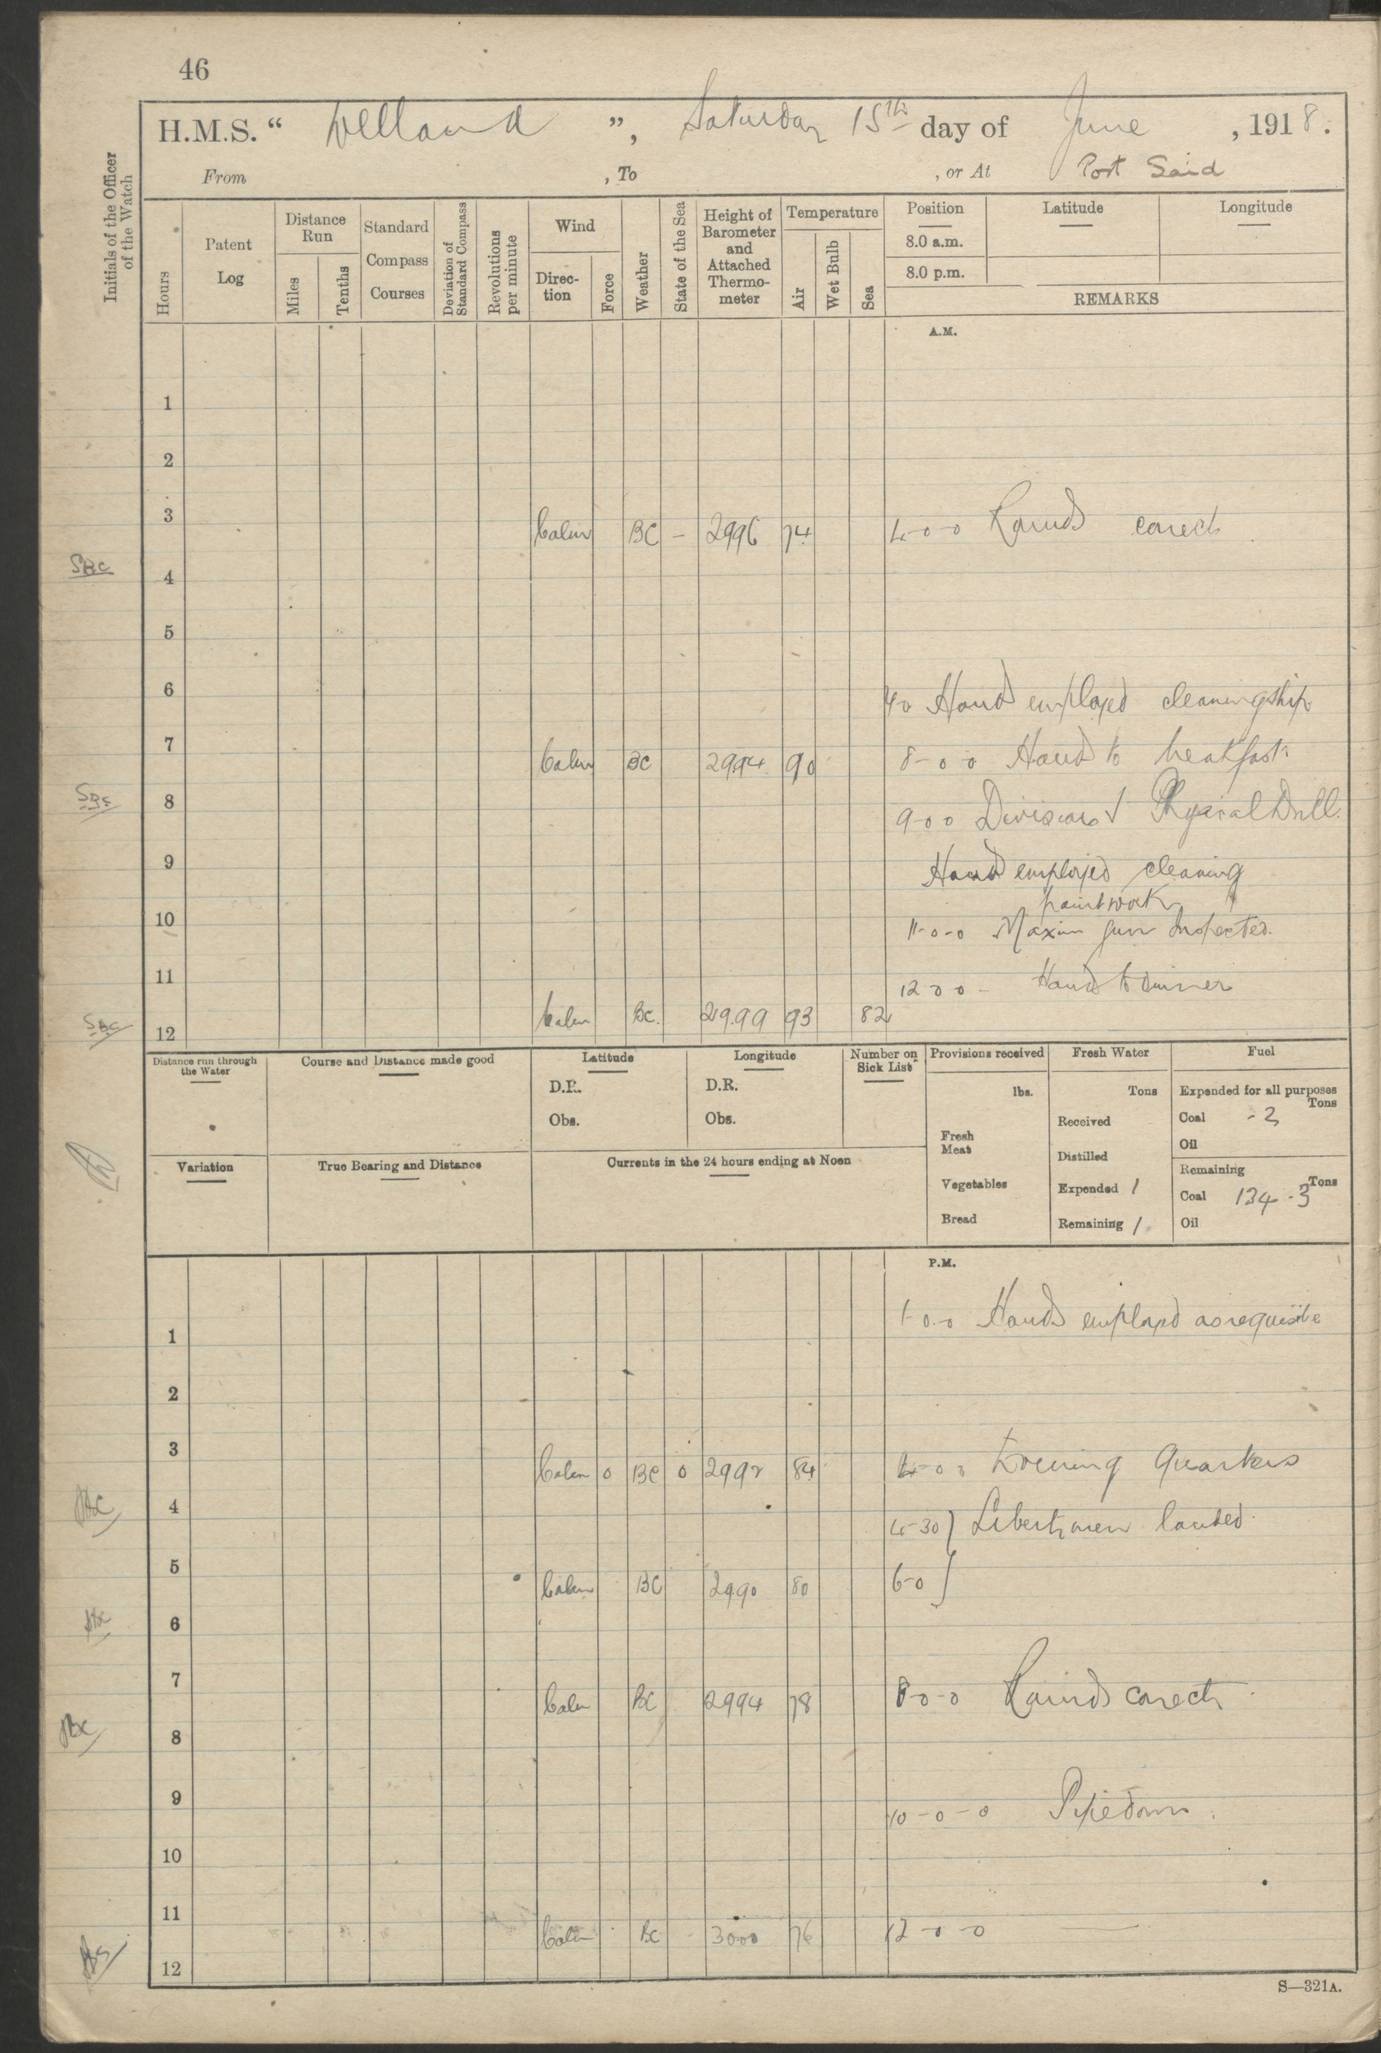 46
H.M.S. " Welland ", Saturday 15th day of June , 1918.
From , To , or At Port Said
Initials of the Officer of the Watch
Hours
Patent Log
Distance Run
Miles
Tenths
Standard Compass Courses
Deviation of Standard Compass
Revolutions per minute
Wind
Direc-tion
Force
Weather
State of the Sea
Height of Barometer and Attached Thermo-meter
Temperature
Air
Wet Bulb
Sea
Position
8.0 a.m.
8.0 p.m.
Latitude
Longitude
REMARKS
A.M.
1
2
3
Calm BC - 2996 74 4-0-0 Rounds correct
SBC
4
5
6
Hands employed cleaning ship
7
Calm BC 2994 90 8-0-0 Hands to breakfast
SBC
8
9-0-0 Divisions & Physical Drill.
9
Hands employed cleaning
paintwork
10
11-0-0 Maxim gun Inspected.
11
12-0-0 - Hands to dinner
Calm BC. 29.99 93 82
SBC
12
Distance run through the Water
Course and Distance made good
Latitude
D.R.
Obs.
Longitude
D.R.
Obs.
Number on Sick List
Provisions received
lbs.
Fresh Meat
Vegetables
Bread
Fresh Water
Tons
Received
Distilled
Expended 1
Remaining 1
Fuel
Expended for all purposes
Tons
Coal - 2
Oil
Remaining
Tons
Coal 134 - 3
Oil
Variation
True Bearing and Distance
Currents in the 24 hours ending at Noon
P.M.
1-0-0 Hands employed as requisite
1
2
3
Calm 0 BC 0 2992 84 4-0-0 Evening Quarters
4
4-30 } Libertymen landed.
5
6-0 }
Calm BC 2990 80
6
7
Calm BC 2994 78 8-0-0 Rounds correct.
8
9
10-0-0 Pipe down.
10
11
Calm BC 3000 76 12-0-0
12
S—321A.